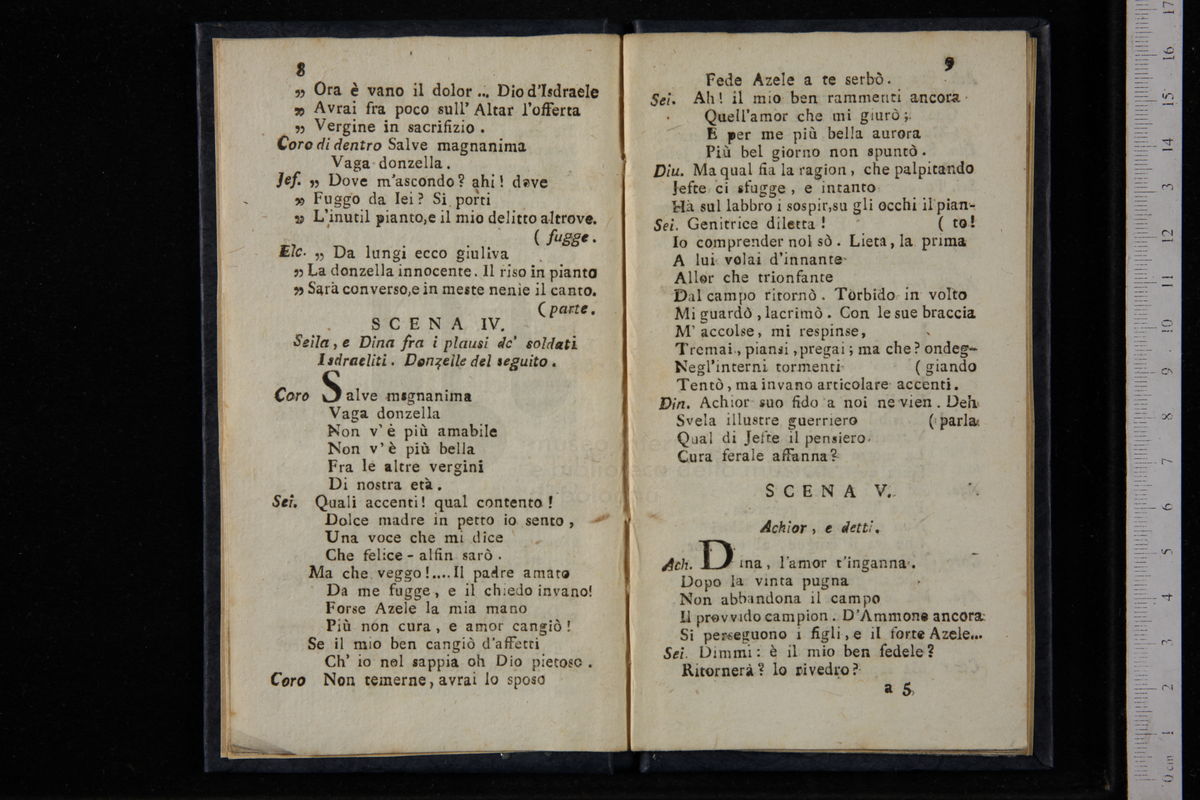 8
„ Ora è vano il dolor ... Dio d'Isdraele
„ Avrai fra poco sull' Altar l'offerta
„ Vergine in sacrifizio .
Coro di dentro Salve magnanima
Vaga donzella .
Jef. „ Dove m'ascondo? ahi! dove
„ Fuggo da lei? Si porti
„ L'inutil pianto, e il mio delitto altrove.
( fugge .
Elc. „ Da lungi ecco giuliva
„ La donzella innocente. Il riso in pianto
„ Sarà converso, e in meste nenie il canto.
( parte .
SCENA IV.
Seila, e Dina fra i plausi de' soldati
Isdraeliti. Donzelle del seguito .
Coro Salve magnanima
Vaga donzella
Non v'è più amabile
Non v'è più bella
Fra le altre vergini
Di nostra età .
Sei. Quali accenti! qual contento !
Dolce madre in petto io sento ,
Una voce che mi dice
Che felice - alfin sarò .
Ma che veggo!....Il padre amato
Da me fugge, e il chiedo invano!
Forse Azele la mia mano
Più non cura, e amor cangiò !
Se il mio ben cangiò d'affetti
Ch' io nol sappia oh Dio pietoso .
Coro Non temerne, avrai lo sposo
9
Fede Azele a te serbò .
Sei. Ah! il mio ben rammenti ancora
Quell'amor che mi giurò ;
E per me più bella aurora
Più bel giorno non spuntò .
Diu. Ma qual fia la ragion, che palpitando
Jefte ci sfugge, e intanto
Hà sul labbro i sospir, su gli occhi il pian-
Sei. Genitrice diletta ! ( to!
Io comprender nol sò . Lieta, la prima
A lui volai d'innante
Allor che trionfante
Dal campo ritornò . Torbido in volto
Mi guardò , lacrimò . Con le sue braccia
M' accolse, mi respinse,
Tremai, piansi, pregai; ma che? ondeg-
Negl'interni tormenti ( giando
Tentò, ma invano articolare accenti.
Din. Achior suo fido a noi ne vien . Deh
Svela illustre guerriero ( parla
Qual di Jefte il pensiero
Cura ferale affanna?
SCENA V.
Achior, e detti.
Ach. Dina, l'amor t'inganna.
Dopo la vinta pugna
Non abbandona il campo
Il provvido campion. D'Ammone ancora
Si perseguono i figli, e il forte Azele...
Sei. Dimmi: è il mio ben fedele?
Ritornerà? lo rivedro?
a 5